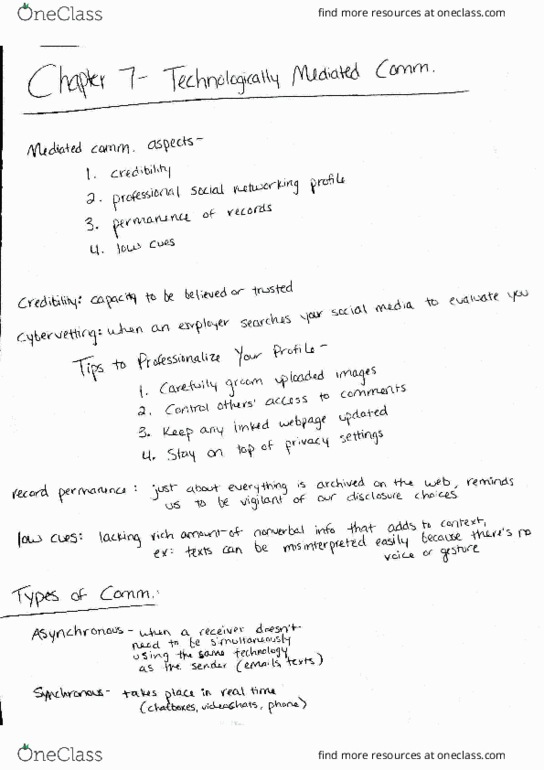 OneClass find more resources at oneclass.com
Chapter 7- Technologically Mediated Comm.
Mediated comm. aspects-
1. credibility
2. professional social networking profile
3. permanence of records
4. low cues
Credibility: capacity to be believed or trusted
Cybervetting: when an employer searches your social media to evaluate you
Tips to Professionalize Your Profile-
1. Carefully groom uploaded images
2. Control others' access to comments
3. Keep any linked webpage updated
4. Stay on top of privacy settings
record permanence: just about everything is archived on the web, reminds
us to be vigilant of our disclosure choices
low cues: lacking rich amount of nonverbal info that adds to context,
ex: texts can be misinterpreted easily because there's no
voice or gesture
Types of Comm.:
Asynchronous - when a receiver doesn't
need to be simultaneously
using the same technology
as the sender (emails, texts)
Synchronous- takes place in real time
(chatboxes, videochats, phone)
OneClass find more resources at oneclass.com